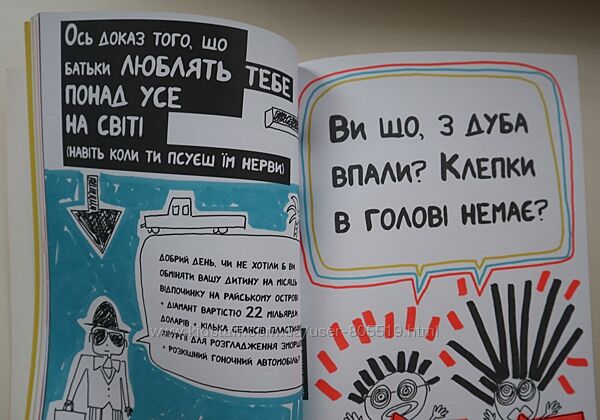 Ось доказ того, що
батьки ЛЮБЛЯТЬ ТЕБЕ
ПОНАД УСЕ
НА СВІТІ
(НАВІТЬ КОЛИ ТИ ПСУЄШ ЇМ НЕРВИ)
ДОБРИЙ ДЕНЬ, ЧИ НЕ ХОТІЛИ Б ВИ
ОБМІНЯТИ ВАШУ ДИТИНУ НА МІСЯЦЬ
ВІДПОЧИНКУ НА РАЙСЬКОМУ ОСТРОВІ
+ ДІАМАНТ ВАРТІСТЮ 22 МІЛЬЯРДИ
ДОЛАРІВ + КІЛЬКА СЕАНСІВ ПЛАСТИЧ
ДЛЯ РОЗГЛАДЖЕННЯ ЗМОРШ
+ РОЗКІШНИЙ ГОНОЧНИЙ АВТОМОБІЛЬ?
Ви що, з дуба
впали? Клепки
в голові немає?